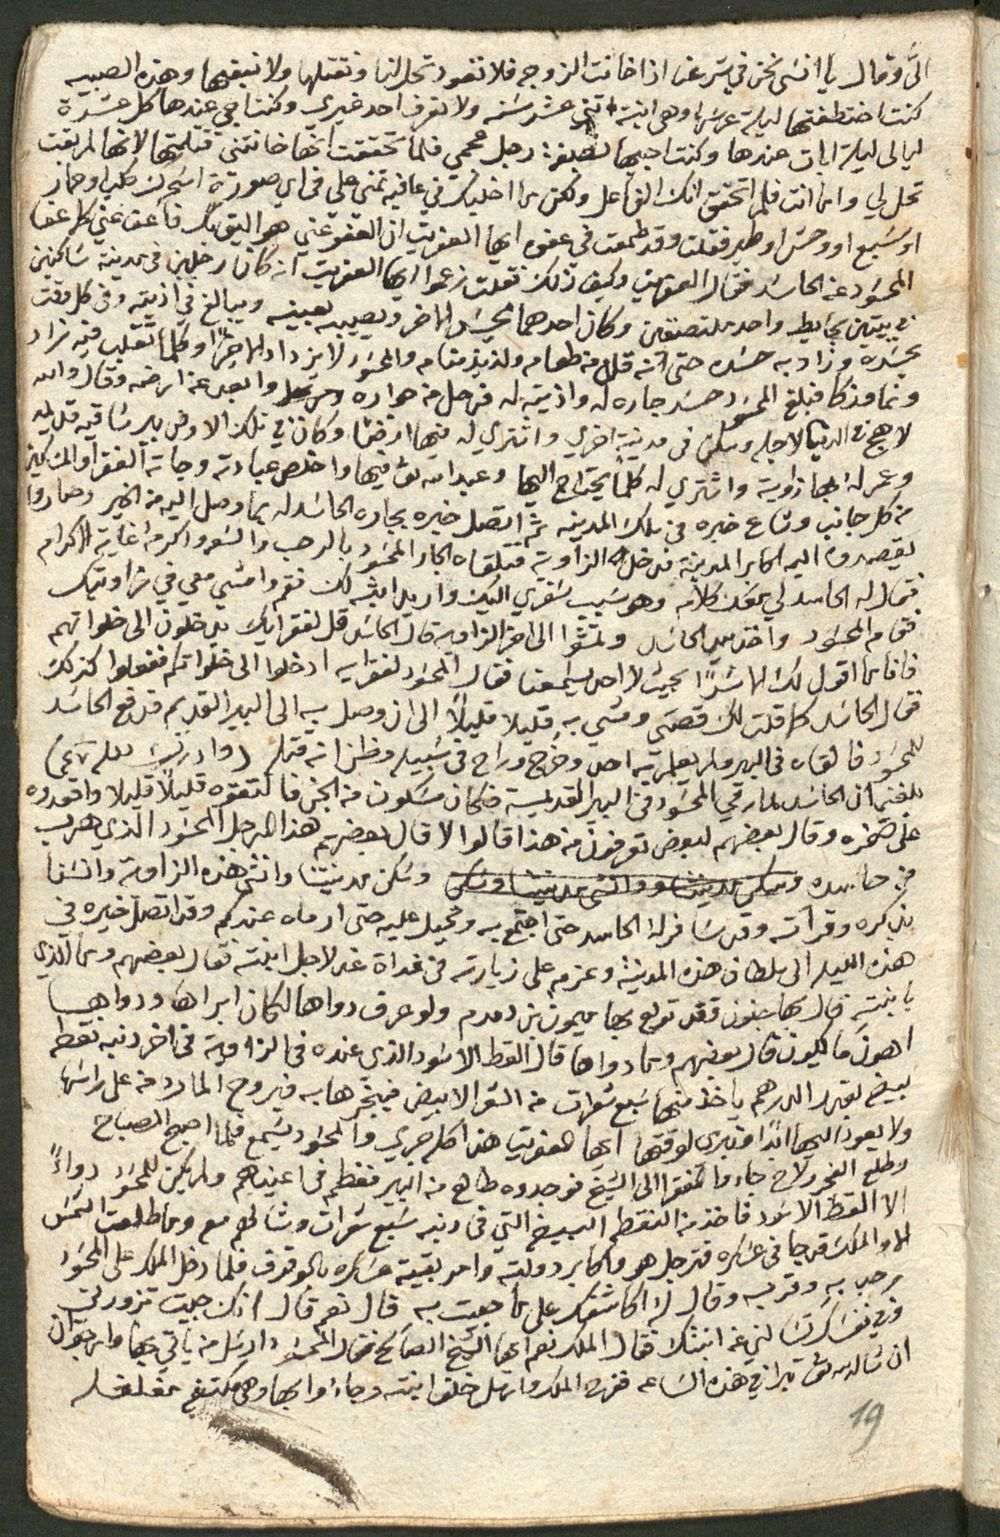 اليَّ وقال يا انسي نحن في شرعنا اذا خانت الزوجه فلا تعود تحل لنا ونقتلها ولا نبقيها وهذه الصبيه
كنت اختطفتها ليلة عرسها وهي ابنة اثني عشر سنه ولا تعرف احد غيري وكنت اجي عندها كل عشرة
ليالي ليلة ابات عندها وكنت اجيها بصفة رجل عجمي فلما تحققت انها خانتني قتلتها لانها لم بقت
تحل لي واما انت فلم اتحقق انك الفاعل ولكن ما اخليك في عافيه تمنى علي في اي صورة اسحرك كلب او حمار
او سبع او وحش او طير فقلت وقد طمعت في عفوه ايها العفريت ان العفو عني هو اليق بك فاعف عني كما عفا
المحسود عن الحاسد فقال العفريت وكيف ذلك فقلت زعموا ايها العفريت انه كان رجلين في مدينة ساكنين
في بيتين بحايط واحد ملتصقين وكان احدهما يحسد الاخر ويصيبه بعينه ويبالغ في اذيته وفي كل وقت
يحسده وزاد به حسده حتى انه قل من طعامه ولذيذ منامه والمحسود لا يزداد الا خيرا وكلما تقلب فيه زاد
ونما وزكا فبلغ المحسود حسد جاره له واذيته له فرحل من جواره وابعد عن ارضه وقال والله
لاهج في الدنيا لاجله وسكن في مدينة اخري واشتري له فيها ارضا وكان في تلك الارض بير ساقيه قديمه
وعمر له بها زاوية واشتري له كلما يحتاج اليها وعبد الله تعا فيها واخلص عبادته وجاته الفقرا والمساكين
من كل جانب وشاع خبره في تلك المدينه ثم اتصل خبره بجاره الحاسد له بما وصل اليه من الخير وصاروا
يقصدوه اليه اكابر المدينة فدخل الزاوية فتلقاه الجار المحسود بالرحب والسعه واكرمه غاية الاكرام
فقال له الحاسد لي معك كلام وهو سبب سفري اليك واريد ابشرك فقم وامشي معي في زاويتك
فقام المحسود واخذ بيد الحاسد وتمشوا الى اخر الزاويه قال الحاسد قل لفقرايك يدخلون الى خلواتهم
فانا ما اقول لك الا سرًا بحيث لا احد يسمعنا فقال المحسود لفقرايه ادخلوا الى خلواتكم ففعلوا كذلك
فقال الحاسد كما قلت لك قصتي ومشي به قليلا قليلاً الى ان وصل به الى البير القديم فدفع الحاسد
للمحسود فالقاه في البير ولم يعلم به احد وخرج وراح في سبيله وظن انه قتله
بلغني ان الحاسد لما رمي المحسود في البير القديمة فكان مسكون من الجن فالتقوه قليلاً قليلا واقعدوه
على الصخره وقال بعضهم لبعض تعرفون من هذا قالوا لا قال بعضهم هذا الرجل المحسود الذي هرب
من حاسده وسكن مدينتنا وانشى هذه الزاوية وانسنا
بذكره وقرأته وقد سافر له الحاسد حتى اجتمع به وتحيل عليه حتى ارماه عندكم وقد اتصل خبره في
هذه الليله الى سلطان هذه المدينة وعزم على زيارته في غداة غد لاجل ابنته فقال بعضهم وما الذي
بابنته قال بها جنون فقد تولع بها ميمون بن دمدم ولو عرف دواها لكان ابراها ودواها
اهون ما يكون قال بعضهم وما دواها قال القط الاسود الذي عنده في الزاوية في اخر ذنبه نقطه
بيضه بقدر الدرهم ياخذ منها سبع شعرات من الشعر الابيض فيبخرها به فيروح المارد من على راسها
ولا يعود اليها ابدًا وتبرى لوقتها ايها العفريت هذا كله جري والمحسود يسمع فلما اصبح الصباح
وطلع الفجر ولاح جاءوا الفقرا الى الشيخ فوجدوه طالع من البير فعظم في اعينهم ولم يكن للمحسود دواءً
الا القط الاسود فاخذ من النقطه البيضه التي في ذنبه سبع شعرات وشالهم معه وما طلعت الشمس
الا والملك قد جا في عسكره فترجل هو واكابر دولته وامر بقية عسكره بالوقوف فلما دخل الملك على المحسود
رحب به وقربه وقال له اكاشفك على ما جيت به قال نعم قال انك جيت تزورني
وفي نفسك تسالني عن ابنتك فقال الملك نعم ايها الشيخ الصالح فقال المحسود ارسل من ياتي بها وارجوا ان
ان شا الله تعا تبرا في هذه الساعه ففرح الملك وارسل خلف ابنته وجاءوا بها وهي مكتفه مغلغله
19